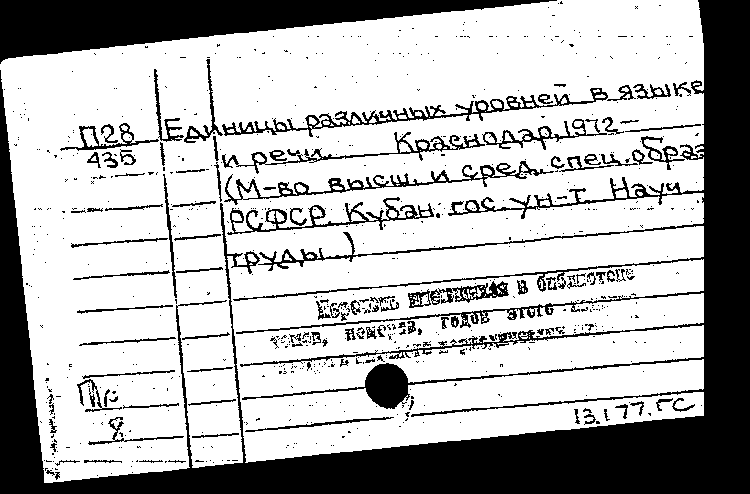 П28 Единицы различных уровней в языке
435 и речи. Краснодар, 1972-
(М-во высш. и сред. спец. образ
РСФСР. Кубан. гос. ун-т. Науч.
труды.)
Перечень имеющихся в библиотеке
томов, номеров, годов этого
8
13.1.77. ГС